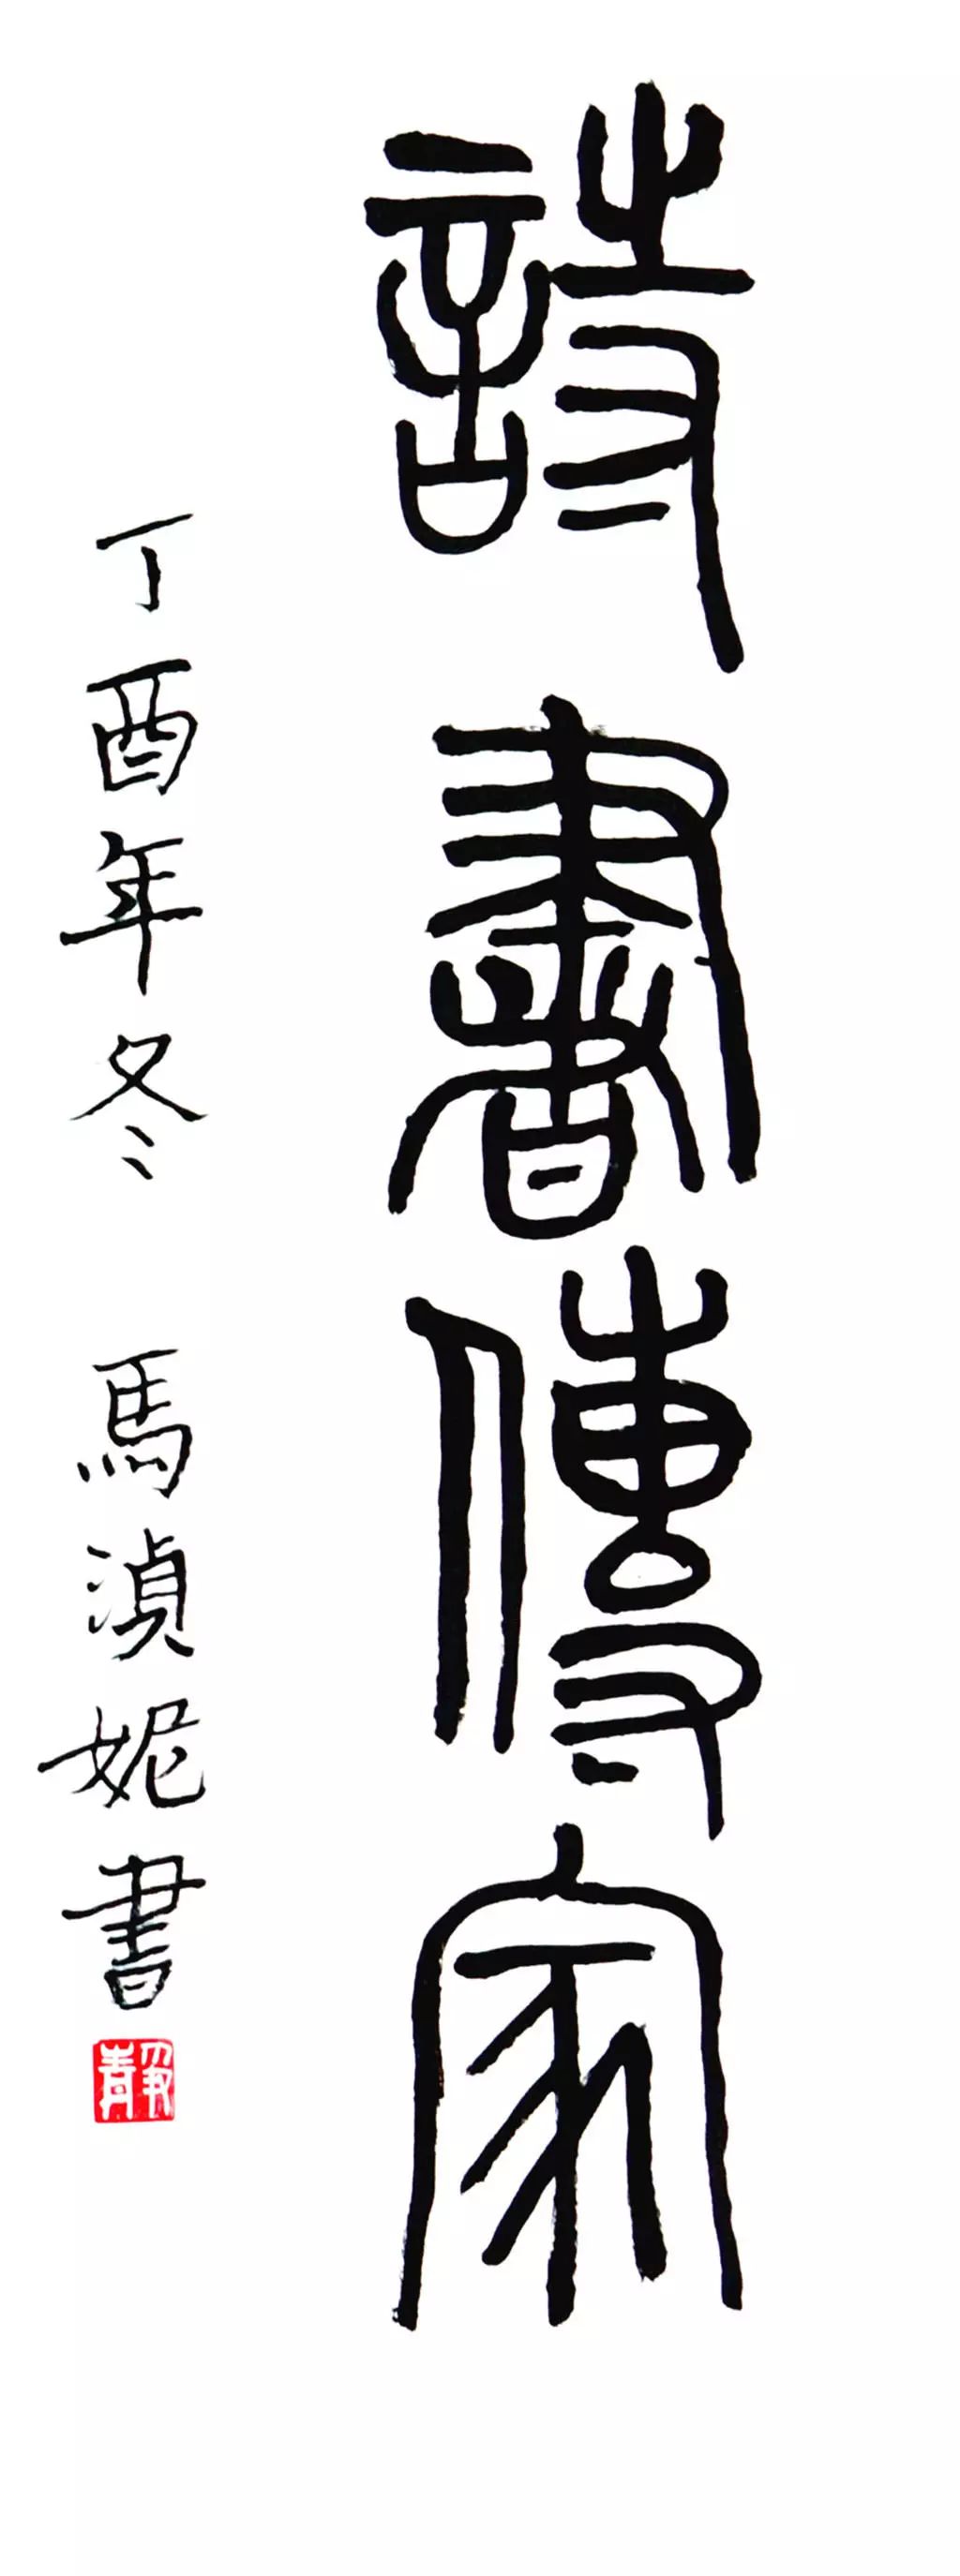 詩書傳家
丁酉年冬 馬湞妮書
靜